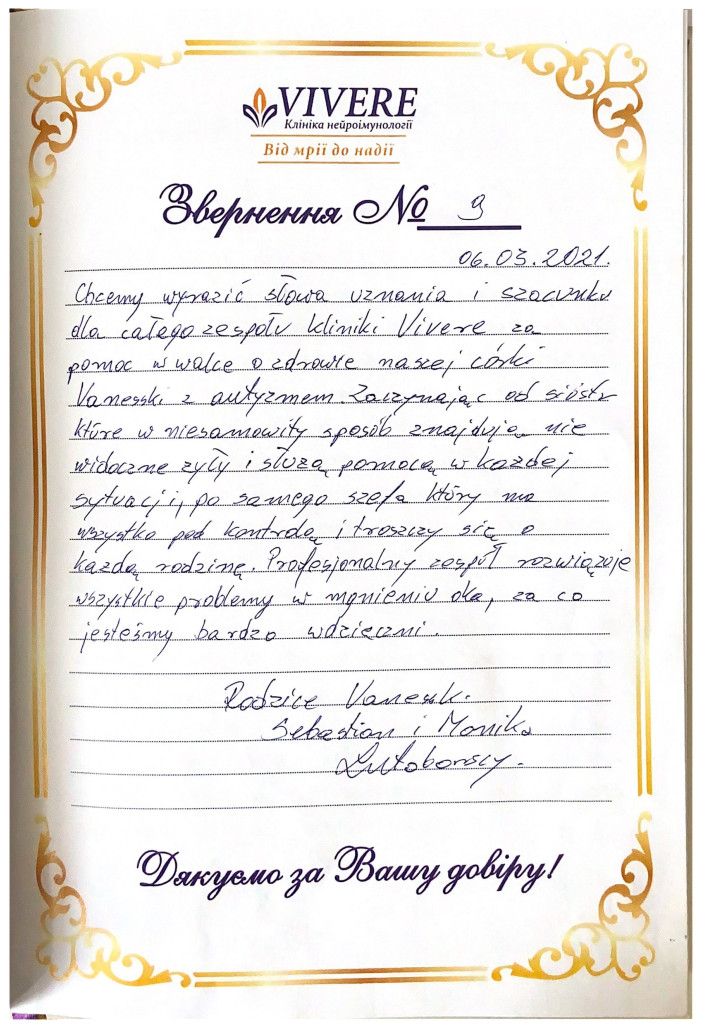 VIVERE
Клініка нейроімунології
Від мрії до надії
Звернення № 9
06.03.2021.
Chcemy wyrazić słowa uznania i szacunku
dla całego zespołu kliniki Vivere za
pomoc w walce o zdrowie naszej córki
Vanesski z autyzmem. Zaczynając od sióstr
które w niesamowity sposób znajdują nie
widoczne żyły i służą pomocą w każdej
sytuacji, po samego szefa który ma
wszystko pod kontrolą i troszczy się o
każdą rodzinę. Profesjonalny zespół rozwiązuje
wszystkie problemy w mgnieniu oka, za co
jesteśmy bardzo wdzięczni.
Rodzice Vanesski.
Sebastian i Monika
Lutoborscy.
Дякуємо за Вашу довіру!